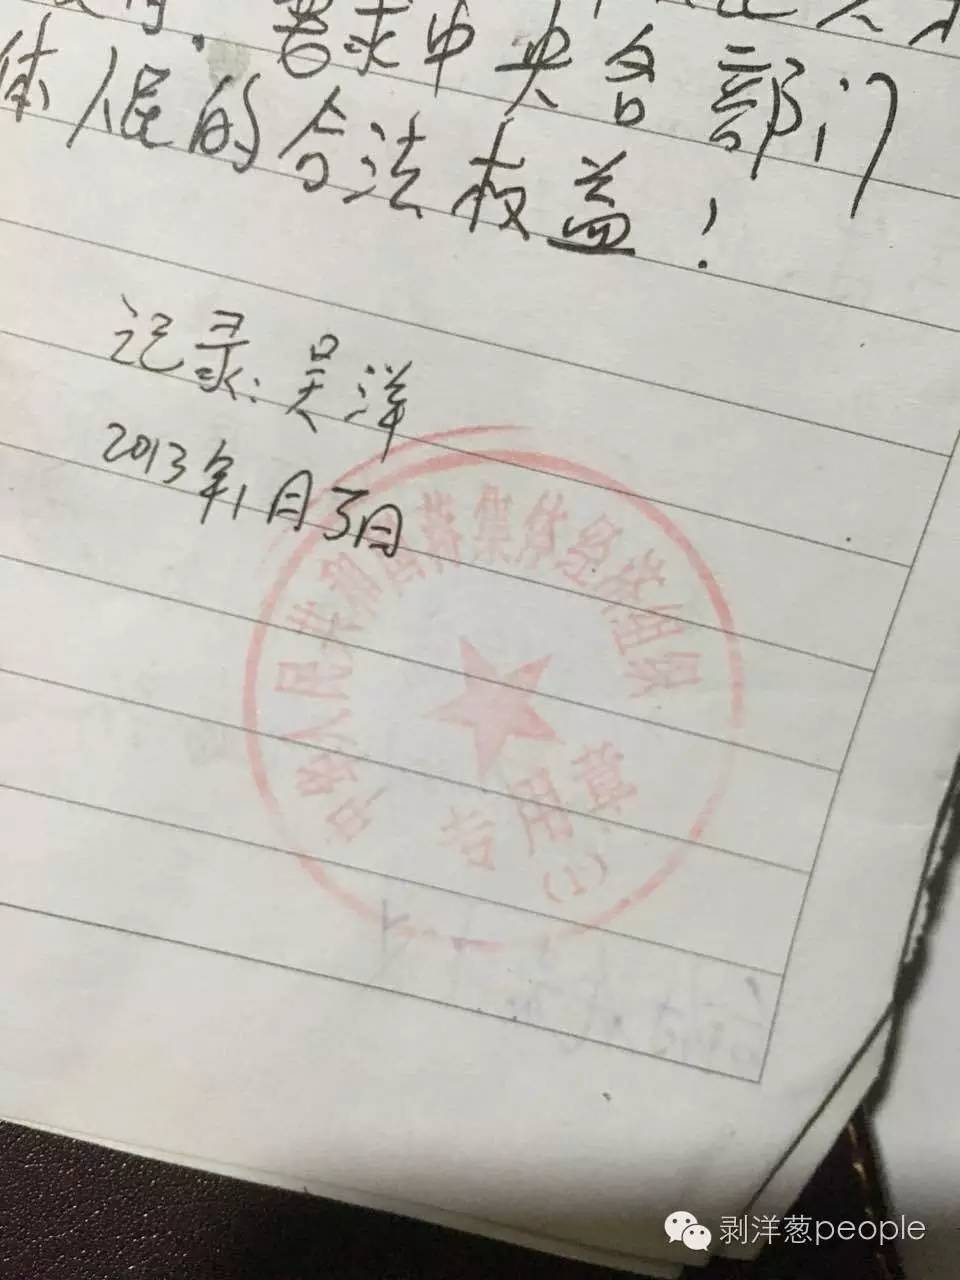 要求中央各部门
体人民的合法权益！
记录：吴洋
2013年1月3日
集体经济组织
专用章
(1)
剥洋葱people